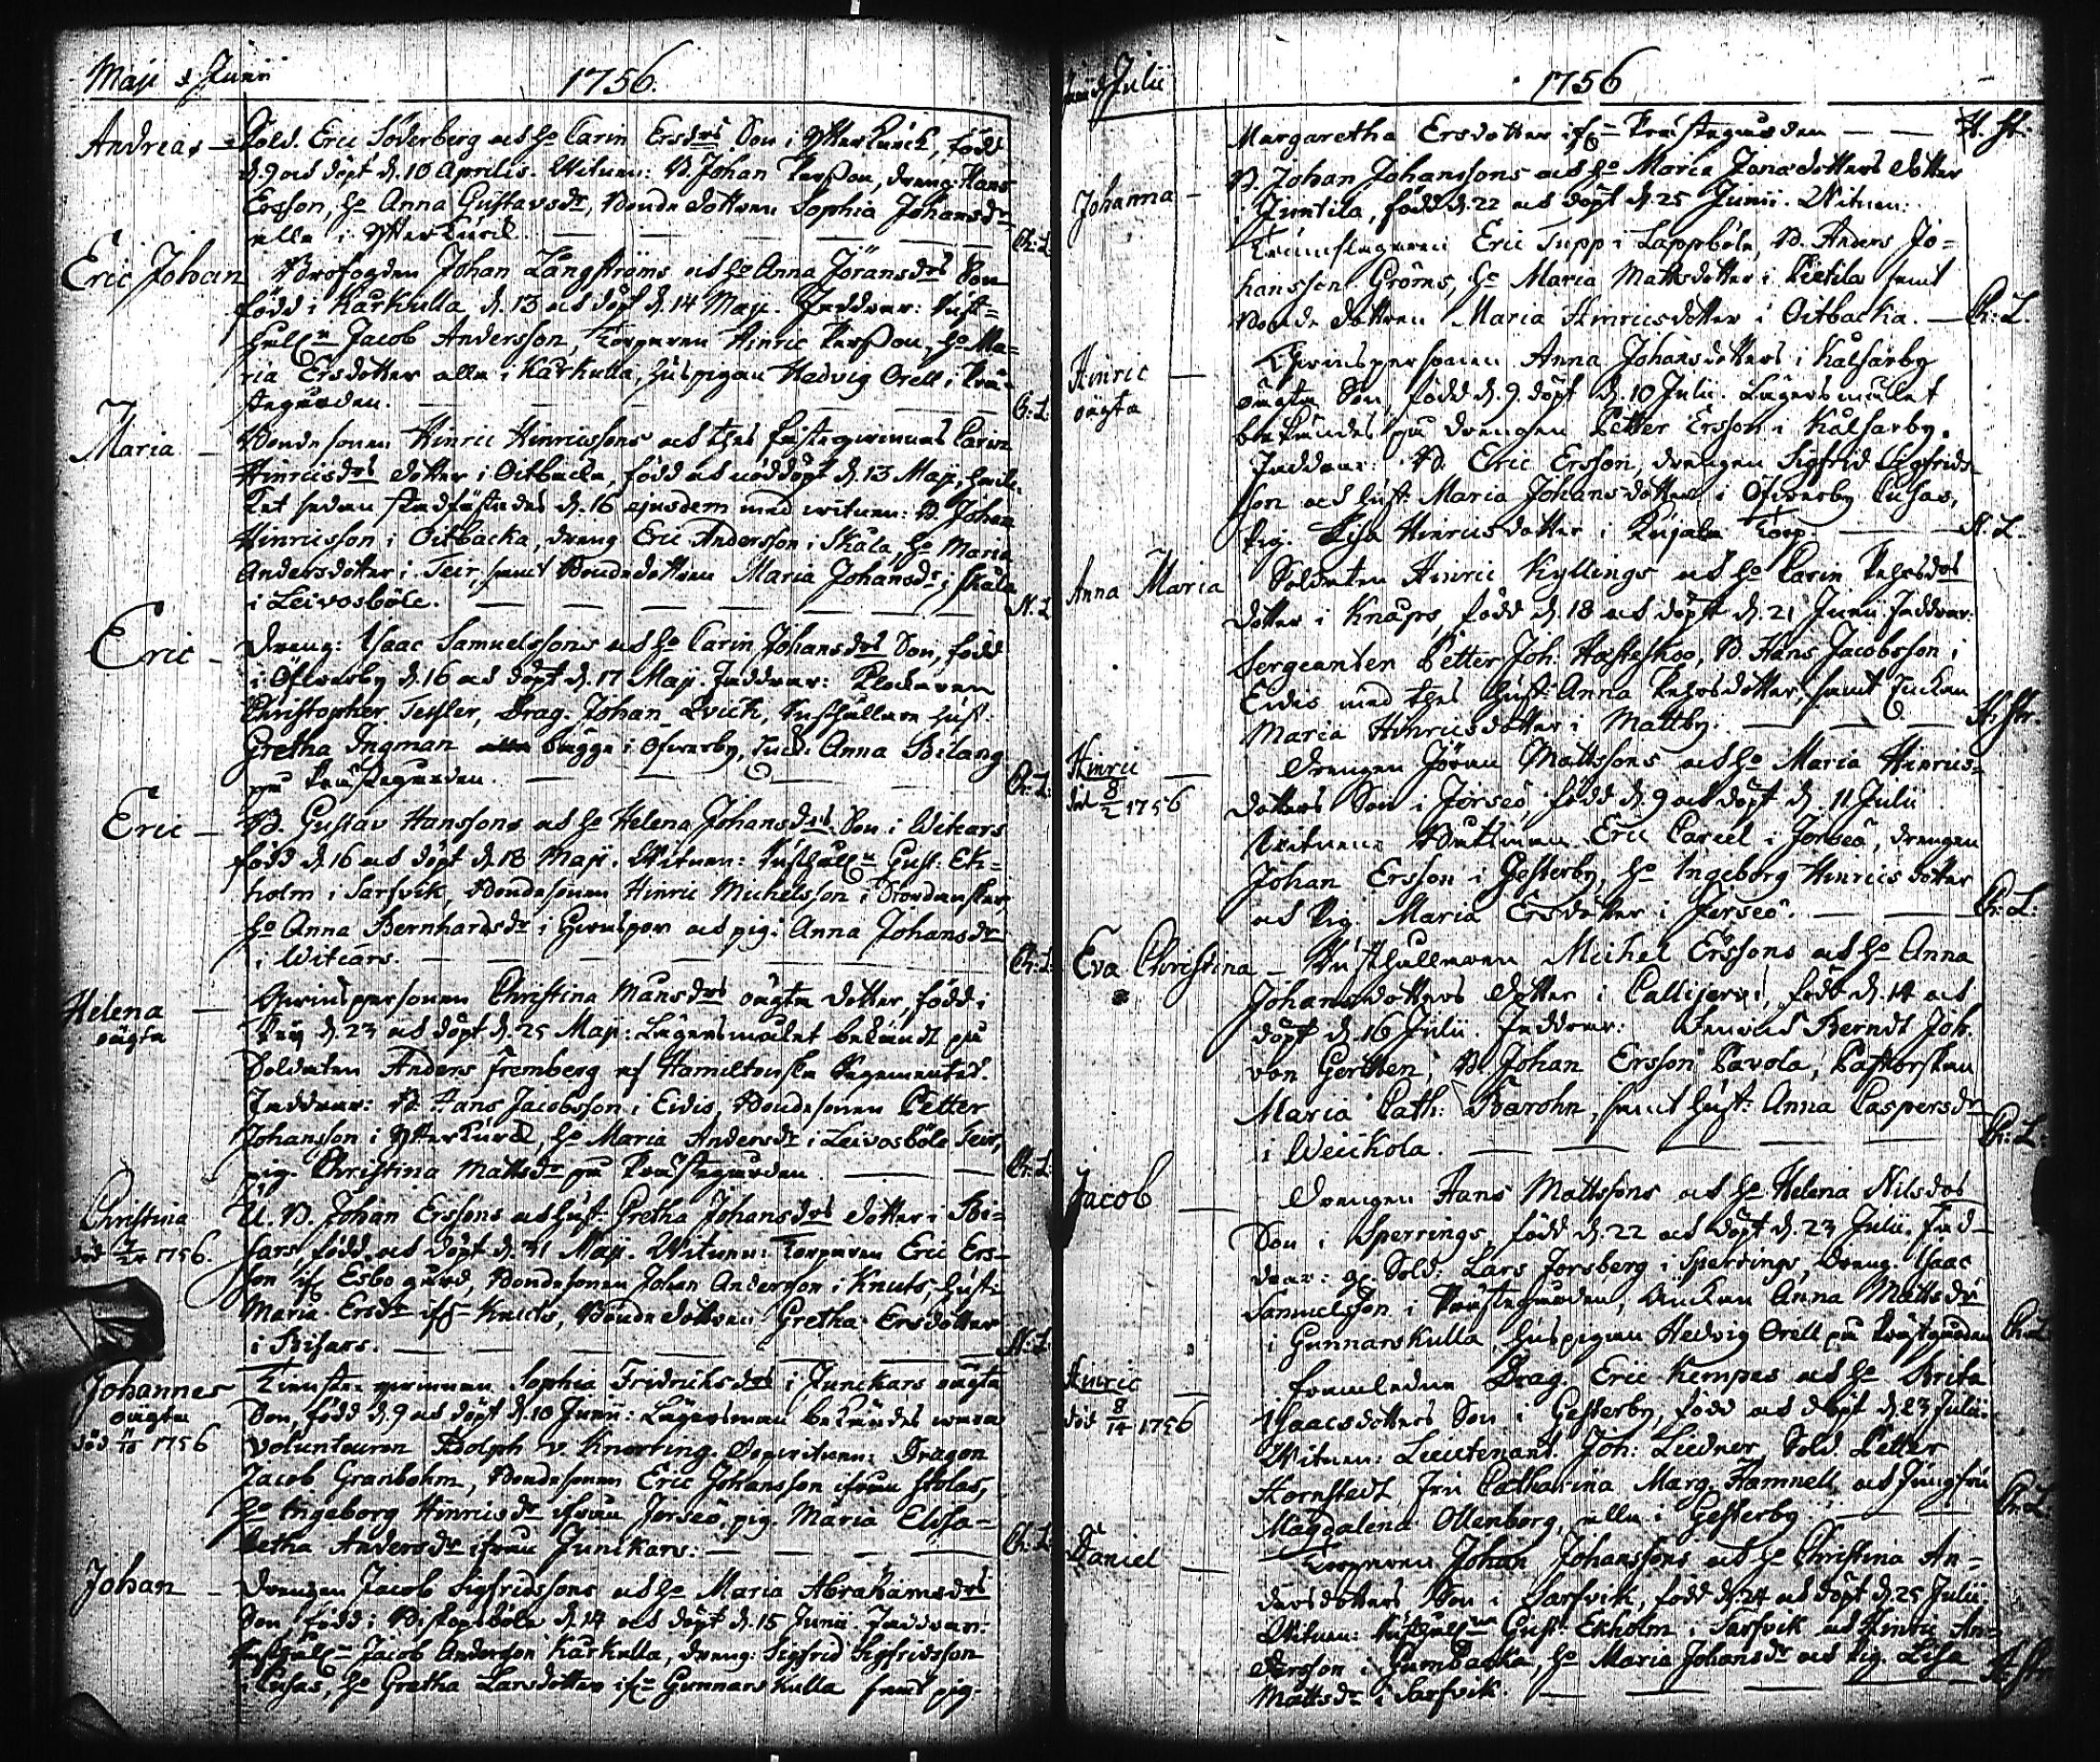 Maji & Junii 1756.
Andreas - Sold. Eric Söderberg och ho Carin Ersdrs Son i Ytterkurck, född
d. 9 och döpt d. 10 Aprilis. Witnen: B. Johan Persson, dreng Hans
Ersson, ho Anna Gustavsdr, Bonde dottren Sophia Johansdr
alla i Ytterkurck. Ch: L.
Eric Johan Brofogden Johan Långströms och ho Anna Jöransdrs Son
född i Karkulla d. 13 och döpt d. 14 Maji. Faddrar: Rust-
hålln Jacob Andersson, Torparen Hinric Persson, ho Ma-
ria Ersdotter alla i Karkulla, huspigan Hedvig Orell i Prä-
stegården. Ch: L.
Maria - Bonde sonen Hinric Hinricssons och thes fästeqvinnas Carin
Hinricsdrs dotter i Oitbacka, född och nöddöpt d. 13 Maji, hvil-
ket sedan stadfästades d. 16 ejusdem med witnen: B. Johan
Hinricsson i Oitbacka, dreng Eric Andersson i Skåla, ho Maria
Andersdotter i Teir, samt Bondedottren Maria Johansdr i Skåla
i Leivosböle. N. L.
Eric - Dreng: Isaac Samuelssons och ho Carin Johansdrs Son, född
i Öfversby d. 16 och döpt d. 17 Maji. Faddrar: Klockaren
Christopher Tessler, Drag. Johan Qvick, Rusthållare hust.
Gretha Ingman bägge i Öfversby, Anna Bilang
på Prästegården. Ch: L:
Eric - B. Gustav Hanssons och ho Helena Johansdrs Son i Witcars
född d. 16 och döpt d. 18 Maji. Witnen: Rusthålln Gust. Ek-
holm i Sarfvik, Bondesonen Hinric Michelsson i
ho Anna Bernhardsdr i och pig: Anna Johansdr
i Witcars. Ch: L:
Helena - Qvinspersonen Christina Månsdrs oägta dotter, född i
oägta d. 23 och döpt d. 25 Maji: Lägersmålet bekändt på
Soldaten Anders Fremberg af Hamiltonska Regementet.
Faddrar: B. Hans Jacobsson i Eidis, Bondesonen Petter
Johansson i Ytterkurck, ho Maria Andersdr i Leivosböle Teir,
pig. Christina Mattsdr på Prästegården. Ch: L:
Christina U. B. Johan Erssons och hust. Gretha Johansdrs dotter i Bi-
död 1756. sars, född och döpt d. 31 Maji. Witnen: Torparen Eric Ers-
son ifr Esbo gård, Bondesonen Johan Andersson i Knuts, hust:
Maria Ersdr ifr Knuts, Bondedottren Gretha Ersdotter
i Bisars. N. L.
Johannes Tienste qvinnan Sophia Fridricksdrs i Junckars oägta
oägta Son, född d. 9 och döpt d. 10 Junii: Lägersman bekändes wara
död 1756 Volunteuren Adolph v. Knorring. Dopwitnen: Dragon
Jacob Granbohm, Bondesonen Eric Johansson ifrån Stolas,
ho Ingeborg Hinricsdr ifrån Jörseö, pig. Maria Elisa-
betha Andersdr ifrån Junckars: Ch: L:
Johan - Drengen Jacob Sigfridssons och ho Maria Abrahamsdrs
Son, född i Biskopsböle d. 14 och döpt d. 15 Junii. Faddrar:
Rusthålln Jacob Andersson Karkulla, dreng: Sigfrid Sigfridsson
i Cusas, ho Gretha Larsdotter ifr Gunnarskulla samt pig.
Julii 1756
Margaretha Ersdotter ifr Prästegården H. St:
Johanna - B. Johan Johanssons och ho Maria Jonædotters dotter
i Juntila, född d. 22 och döpt d. 25 Junii. Witnen:
Trumslagaren Eric Tupp i Lappböle, B. Anders Jo-
hansson Gröms, ho Maria Mattsdotter i Pietila samt
Bonde dottren Maria Hinricsdotter i Oitbacka. Ch: L.
Hinric - Qvinspersonen Anna Johansdotters i Kalfarby
oägta oägta Son, född d. 9 döpt d. 10 Julii. Lägersmålet
bekändes på drengen Petter Ersson i Kalfarby.
Faddrar: B. Eric Ersson, drengen Sigfrid Sigfrids-
son och hust: Maria Johansdotter i Öfversby Cusas,
Pig. Lisa Hinricsdotter i Kujala Torp. N. L.
Anna Maria Soldaten Hinric Kyllings och ho Carin Pehrsdrs
dotter i Knaprs, född d. 18 och döpt d. 21 Junii Faddrar:
Sergeanten Petter Joh. Hæsteskoo, B. Hans Jacobsson i
Eidis med thes hust: Anna Pehrsdotter, samt Enckan
Maria Hinricsdotter i Mattby. H: Str.
Hinric - Drengen Jöran Mattssons och ho Maria Hinrics-
död 8/2 1756 dotters Son i Jorseö, född d. 9 och döpt d. 11 Julii
Witnen: Båtsman Eric Careel i Jorseö, drengen
Johan Ersson i Gesterby, ho Ingeborg Hinrics dotter
och Pig. Maria Ersdotter i Jorseö. Ch: L:
Eva Christina - Rusthållaren Michel Erssons och ho Anna
Johansdotters dotter i Callijervi, född d. 14 och
döpt d. 16 Julii. Faddrar: Berndt Joh.
von Gertten, B. Johan Ersson Pavola, Pastorskan
Maria Cath: Barohn, samt hust: Anna Caspersdr
i Weickola. Ch: L:
Jacob - Drengen Hans Mattssons och ho Helena Nilsdrs
Son i Sperrings, född d. 22 och döpt d. 23 Julii. Fad-
drar: Sold: Lars Forsberg i Sperrings, dreng. Isaac
Samuelsson i Prästegården, Änckan Anna Mattsdr
i Gunnarskulla, huspigan Hedvig Orell på Prästgården Ch: L
Hinric - framledne Drag. Eric Kempes och ho Brita
död 8/14 1756 Isaacsdotters Son i Gesterby, född och döpt d. 23 Julii:
Witnen: Lieutenant Joh: Liedner, Sold. Petter
Hornstedt, Fru Catharina Marg. Hamnell och Jungfru
Magdalena Ollenborg, alla i Gesterby. Ch: L
Daniel - Torparen Johan Johanssons och ho Christina An-
dersdotters Son i Sarfvik, född d. 24 och döpt d. 25 Julii.
Witnen: Rusthålln Gust. Ekholm i Sarfvik och Hinric An-
dersson i Gumbacka, ho Maria Johansdr och Pig. Lisa
Mattsdr i Sarfvik. H. Str